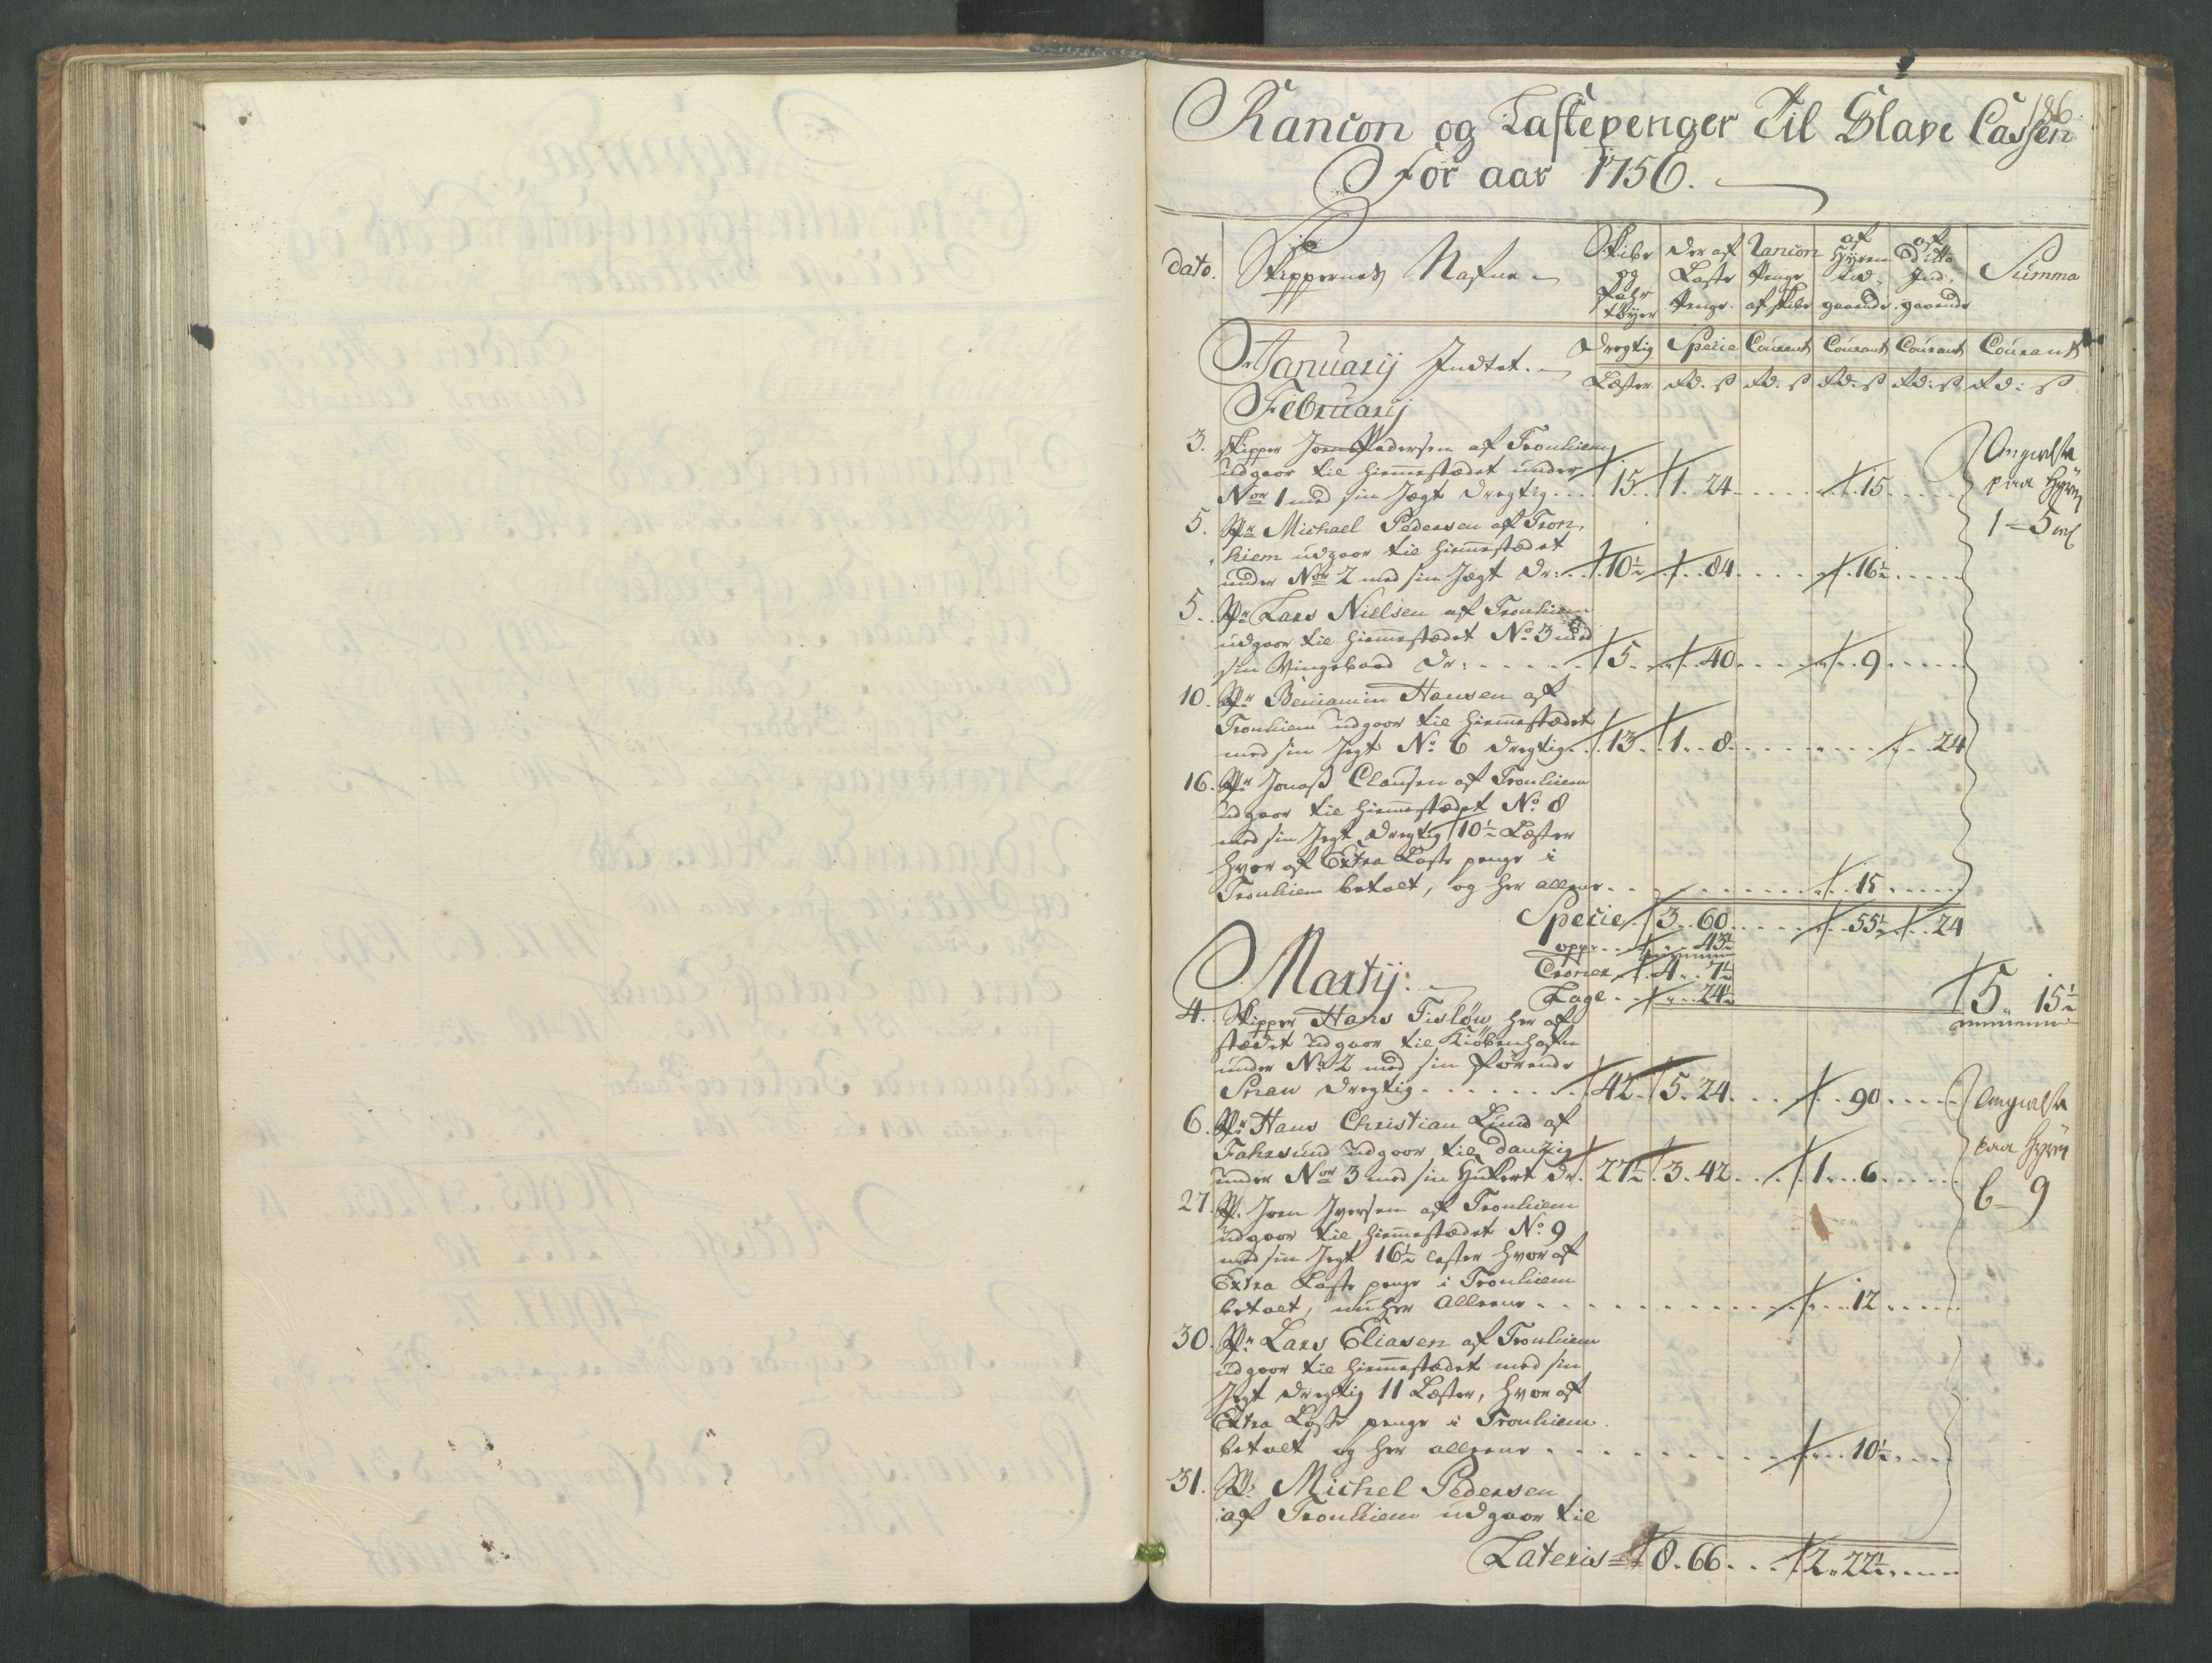 186.
Rancon og Lastepenger Til Slave Cassen
For aar 1756.
dato. Skippernes Nafne Skibe og Fahr tøyer Der af Laste Penge. Rancon Penge af Skibe af Hyren Ud, gaaende af Ditto Ind, gaaende Summa
Drægtig Specie Courant Courant Courant Courant
Januarij Intet.
Læster Rd. ß Rd. ß Rd: ß Rd: ß Rd: ß
Februarij
3. Skipper Joen Pedersen af Tronhiem
udgaar til hiemmestædet under
No 1 med sin Jægt Drægtig.... 15. 1. 24..... 15....
Angivelse
paa Hyren
1 - 5 mk
5. Sr Michael Pedersen af Tron,
hiem udgaar til hiemmestædet
under No 2 med sin Jægt Dr:.. 10½ .. 84.... 16½.....
5. Sr Lars Nielsen af Tronhiem
udgaar til hiemmestædet No 3 med
sin Dr:..... 5... 40.... 9.....
10. Sr Beniamin Hansen af
Tronhiem udgaar til hiemmestædet
med sin Jægt No 6 Drægtig.. 13. 1.. 8........ 24
16. Sr Jonas Clausen af Tronhiem
udgaar til hiemmestædet No 8
med sin Jægt Drægtig 10½ Læster
hvor af Extra Laste penge i
Tronhiem betalt, og her allene......... 15.....
Specie. 3. 60..... 55½ .. 24
opp... 43½
Croner. 4.. 7½
Lage... 24½
5. 15½
Martij.
4. Skipper Hans Tisløw her af
stædet udgaar til Kiøbenhafn
under No 2 med sin førende
Snau Drægtig....... 42. 5. 24... 90.....
Angivelse
paa Hyren
6 - 9
6. Sr Hans Christian Lund af
Fahrsund udgaar til Danzig
under No 3 med sin Hukert Dr. 27½. 3. 42... 1... 6.....
27. S. Joen Iversen af Tronhiem
udgaar til hiemmestædet No 9
med sin Jægt 16½ læster hvor af
Extra Laste penge i Tronhiem
betalt, nu her allene............ 12.....
30. Sr Lars Eliasen af Tronhiem
udgaar til hiemmestædet med sin
Jægt Drægtig 11 Læster, hvor af
Extra Laste penge i Tronhiem.
betalt og her allene........... 10½....
31. Sr Michel Pedersen
af Tronhiem udgaar til
Lateris 8. 66... 2. 22½....